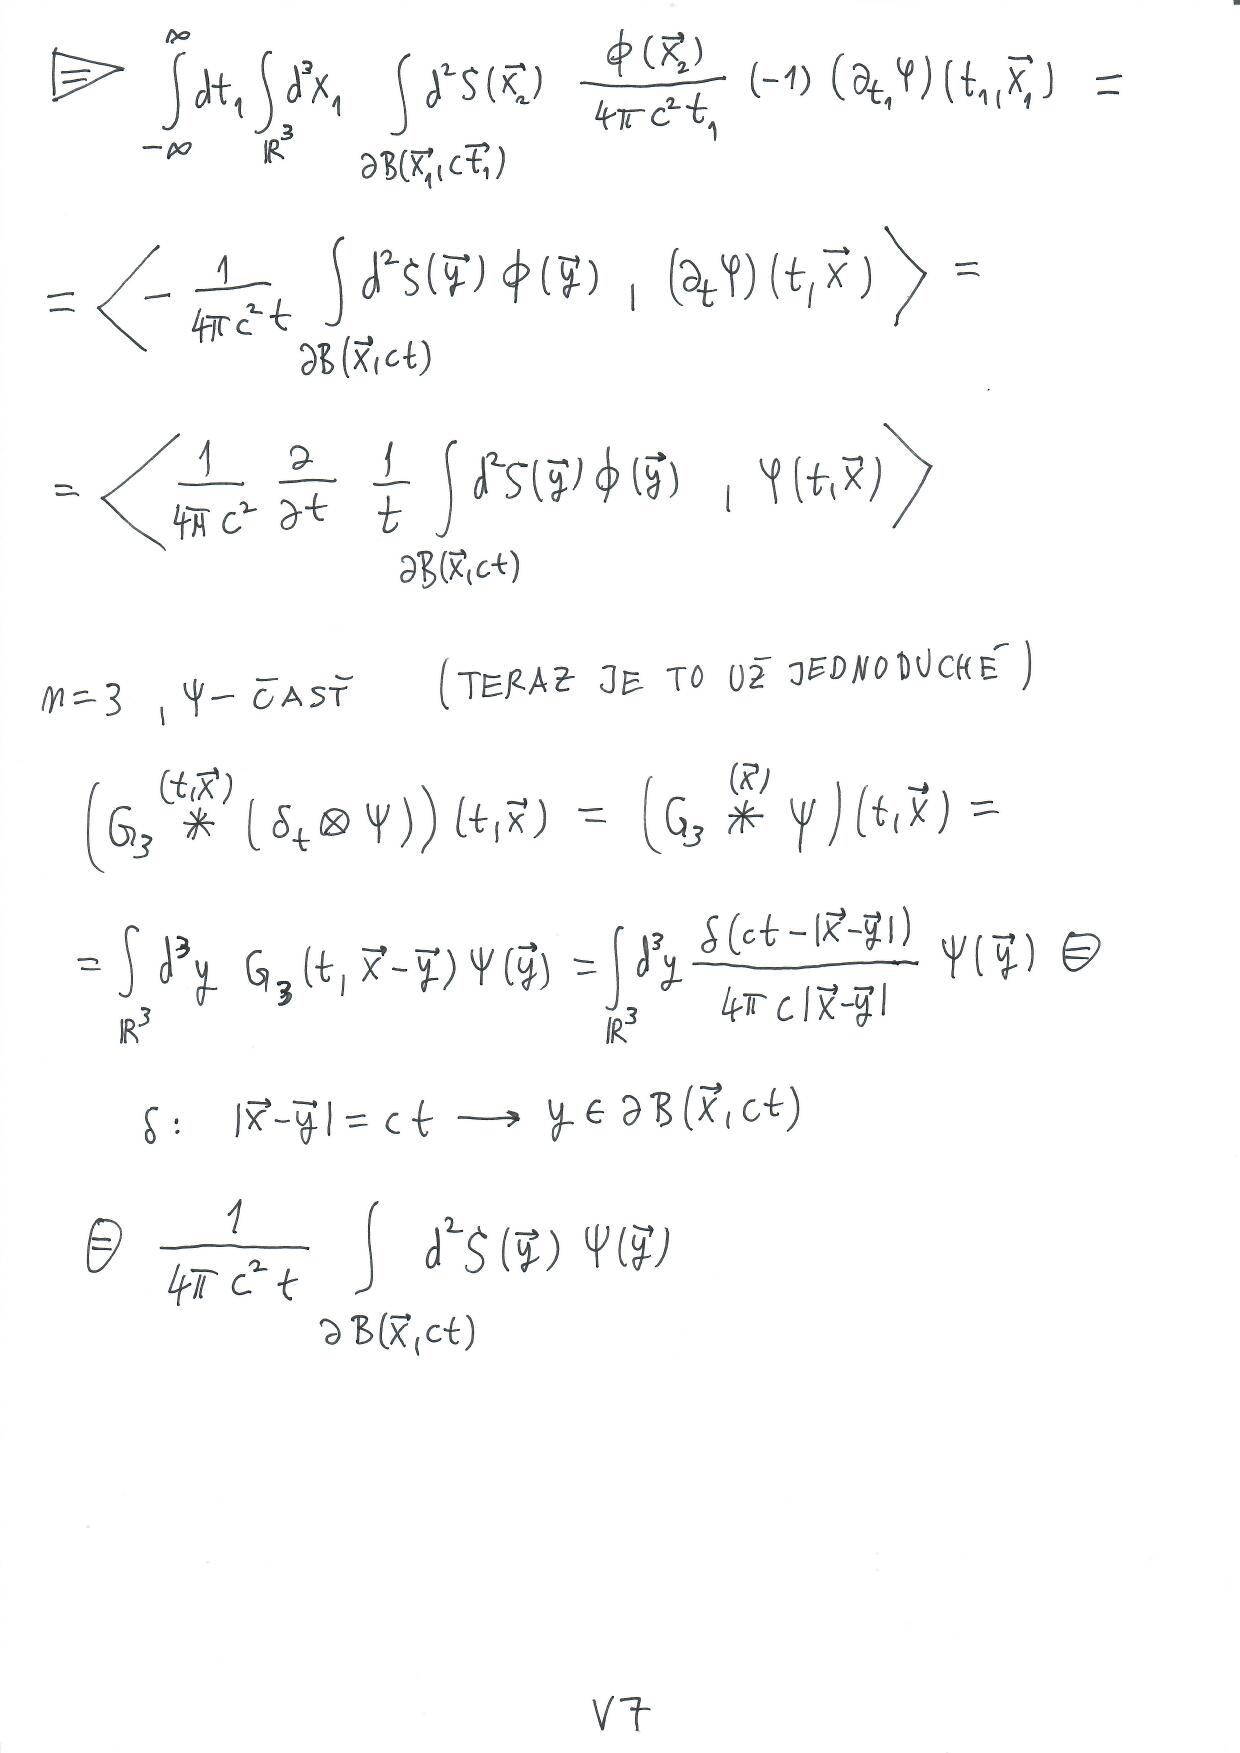 ⊜ ∫_{-∞}^{∞} dt₁ ∫_{ℝ³} d³x₁ ∫_{∂B(x⃗₁, ct⃗₁)} d²S(x⃗₂) ϕ(x⃗₂)/(4πc²t₁) (-1) (∂_{t₁}φ)(t₁, x⃗₁) =
= ⟨ -1/(4πc²t) ∫_{∂B(x⃗, ct)} d²S(y⃗) ϕ(y⃗) , (∂_tφ)(t, x⃗) ⟩ =
= ⟨ 1/(4πc²) ∂/∂t 1/t ∫_{∂B(x⃗, ct)} d²S(y⃗) ϕ(y⃗) , φ(t, x⃗) ⟩
n=3 , ψ – ČASŤ (TERAZ JE TO UŽ JEDNODUCHÉ)
(G₃ *^{(t,x⃗)} (δ_t ⊗ ψ))(t, x⃗) = (G₃ *^{(x⃗)} ψ)(t, x⃗) =
= ∫_{ℝ³} d³y G₃(t, x⃗-y⃗) ψ(y⃗) = ∫_{ℝ³} d³y δ(ct-|x⃗-y⃗|)/(4πc|x⃗-y⃗|) ψ(y⃗) ⊜
δ: |x⃗-y⃗| = ct ⟶ y ∈ ∂B(x⃗, ct)
⊜ 1/(4πc²t) ∫_{∂B(x⃗, ct)} d²S(y⃗) ψ(y⃗)
V7